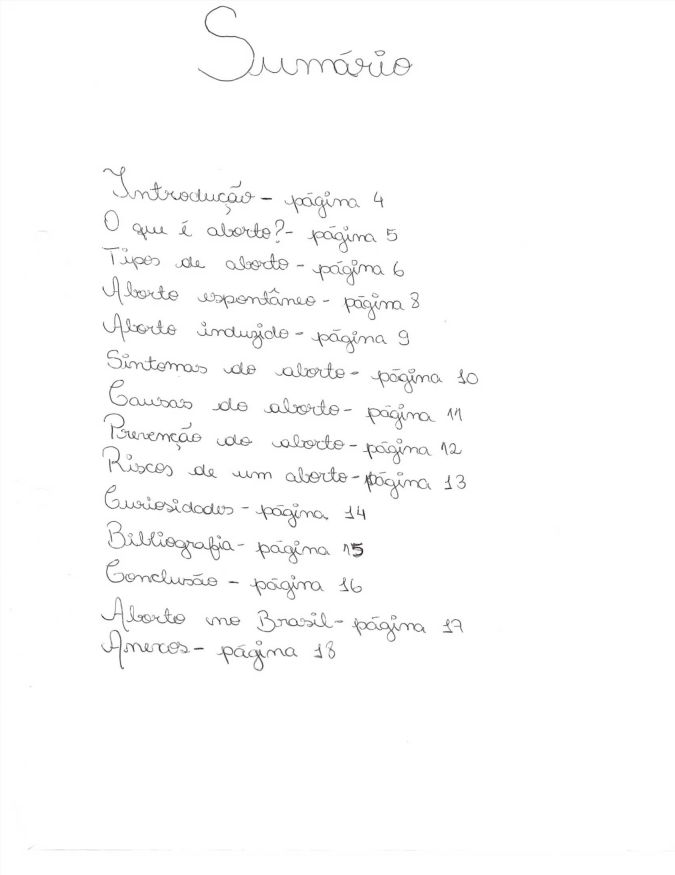 Sumário
Introdução - página 4
O que é aborto? - página 5
Tipos de aborto - página 6
Aborto espontâneo - página 8
Aborto induzido - página 9
Sintomas do aborto - página 10
Causas do aborto - página 11
Prevenção do aborto - página 12
Riscos de um aborto - página 13
Curiosidades - página 14
Bibliografia - página 15
Conclusão - página 16
Aborto no Brasil - página 17
Anexos - página 18